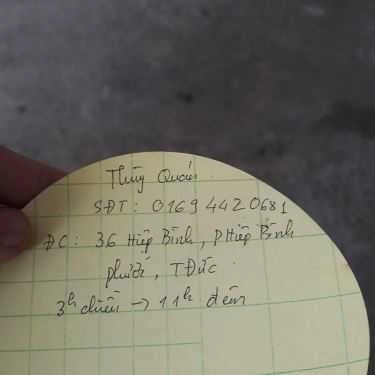 Thùy Quán
SĐT: 01694420681
ĐC: 36 Hiệp Bình, P Hiệp Bình
phước, TĐức.
3h chiều → 11h đêm